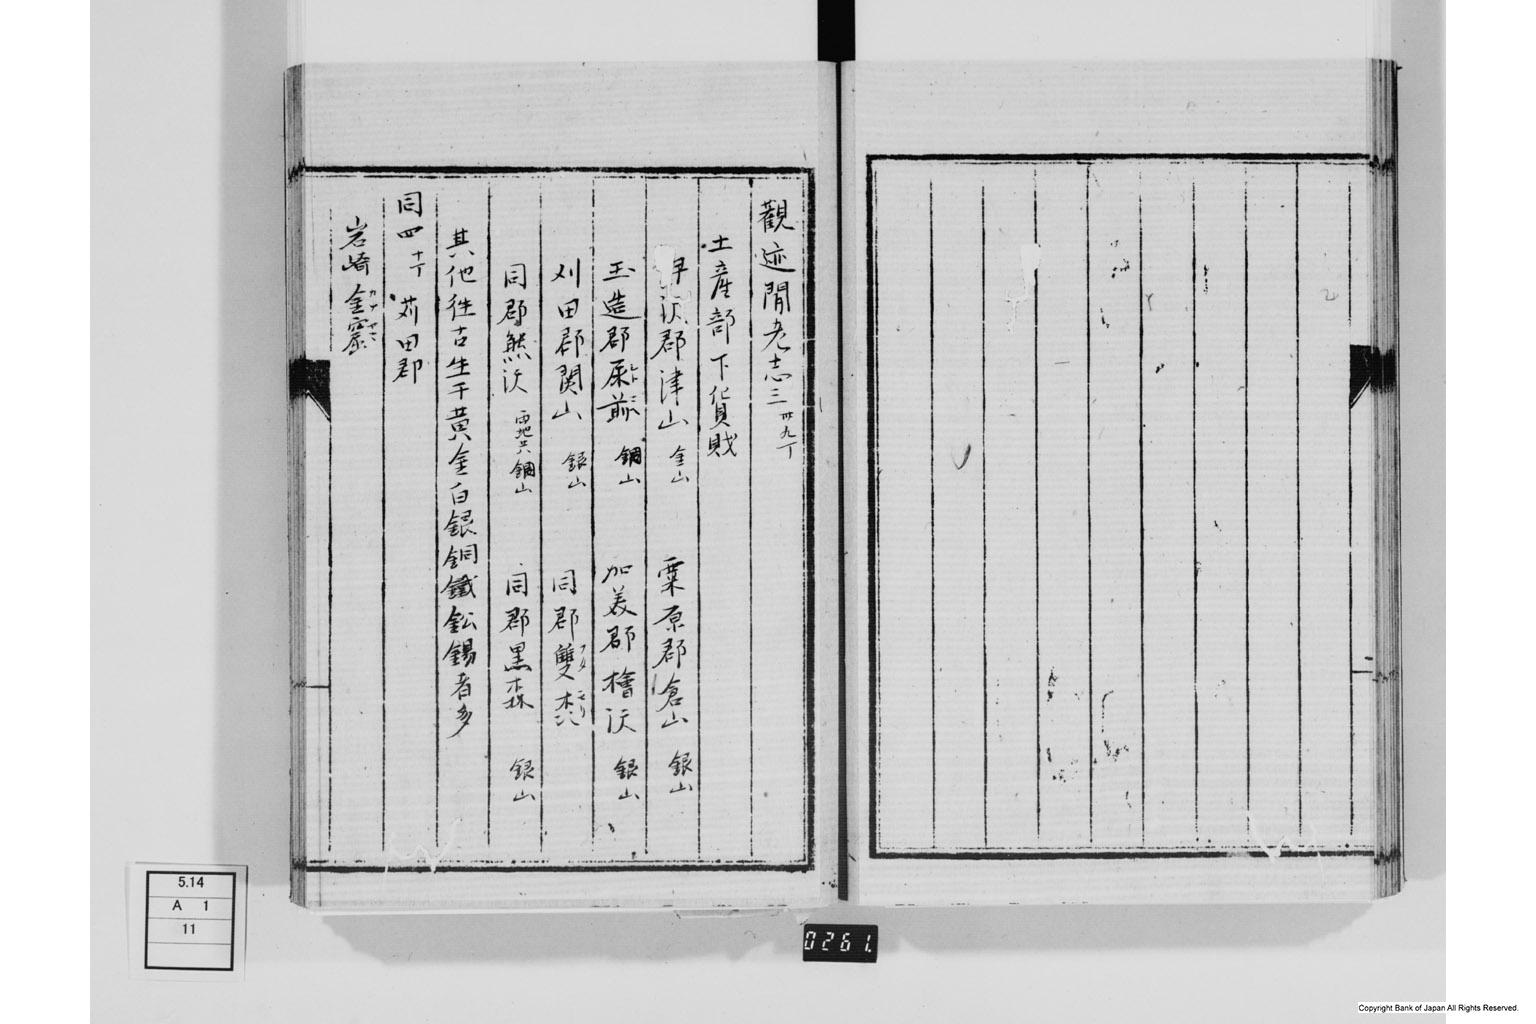 觀迹聞老志三 卅九丁
土産部下貨賊
沢郡津山 金山 栗原郡倉山 銀山
玉造郡 銅山 加美郡檜沢 銀山
刈田郡関山 銀山 同郡雙森
同郡熊沢 銅山 同郡黒森 銀山
其他往古生于黄金白銀銅鐵鉛錫者多
同四 十丁 苅田郡
岩崎金窟
5.14
A 1
11
0261.
Copyright Bank of Japan All Rights Reserved.